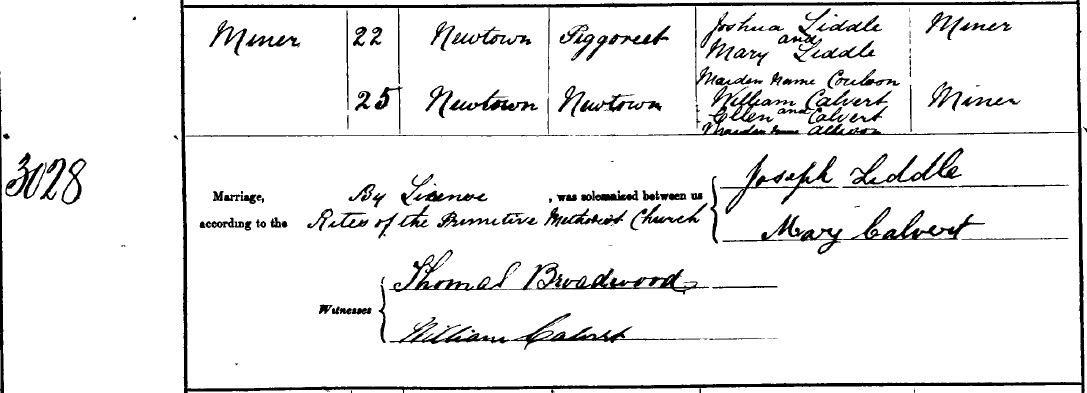 Miner 22 Newtown Piggoreet Joshua Liddle Miner
and
Mary Liddle
Maiden Name Coulson
25 Newtown Newtown William Calvert Miner
and
Ellen Calvert
Maiden Name Allison
3028
Marriage, By Licence, was solemnized between us Joseph Liddle
according to the Rites of the Primitive Methodist Church
Mary Calvert
Thomas Broadwood
Witnesses
William Calvert